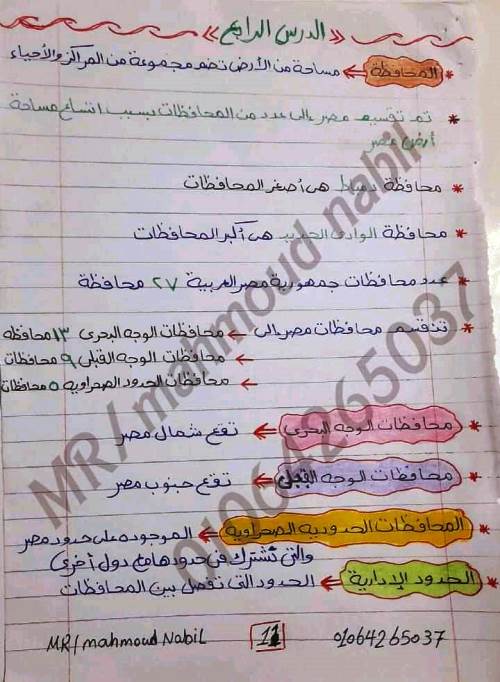 « الدرس الرابع »
* المحافظة ← مساحة من الأرض تضم مجموعة من المراكز والأحياء
* تم تقسيم مصر إلى عدد من المحافظات بسبب اتساع مساحة
أرض مصر
* محافظة دمياط هى أصغر المحافظات
* محافظة الوادى الجديد هى أكبر المحافظات
* عدد محافظات جمهورية مصر العربية ٢٧ محافظة
* تنقسم محافظات مصر إلى ← محافظات الوجه البحرى ١٣ محافظة
← محافظات الوجه القبلى ٩ محافظات
← محافظات الحدود الصحراوية ٥ محافظات
* محافظات الوجه البحرى ← تقع شمال مصر
* محافظات الوجه القبلى ← تقع جنوب مصر
* المحافظات الحدودية الصحراوية ← الموجوده على حدود مصر
والتى تشترك فى حدودها مع دول أخرى
* الحدود الإدارية ← الحدود التى تفصل بين المحافظات
MR/mahmoud Nabil 11 01064265037
MR/mahmoud nabil
01064265037